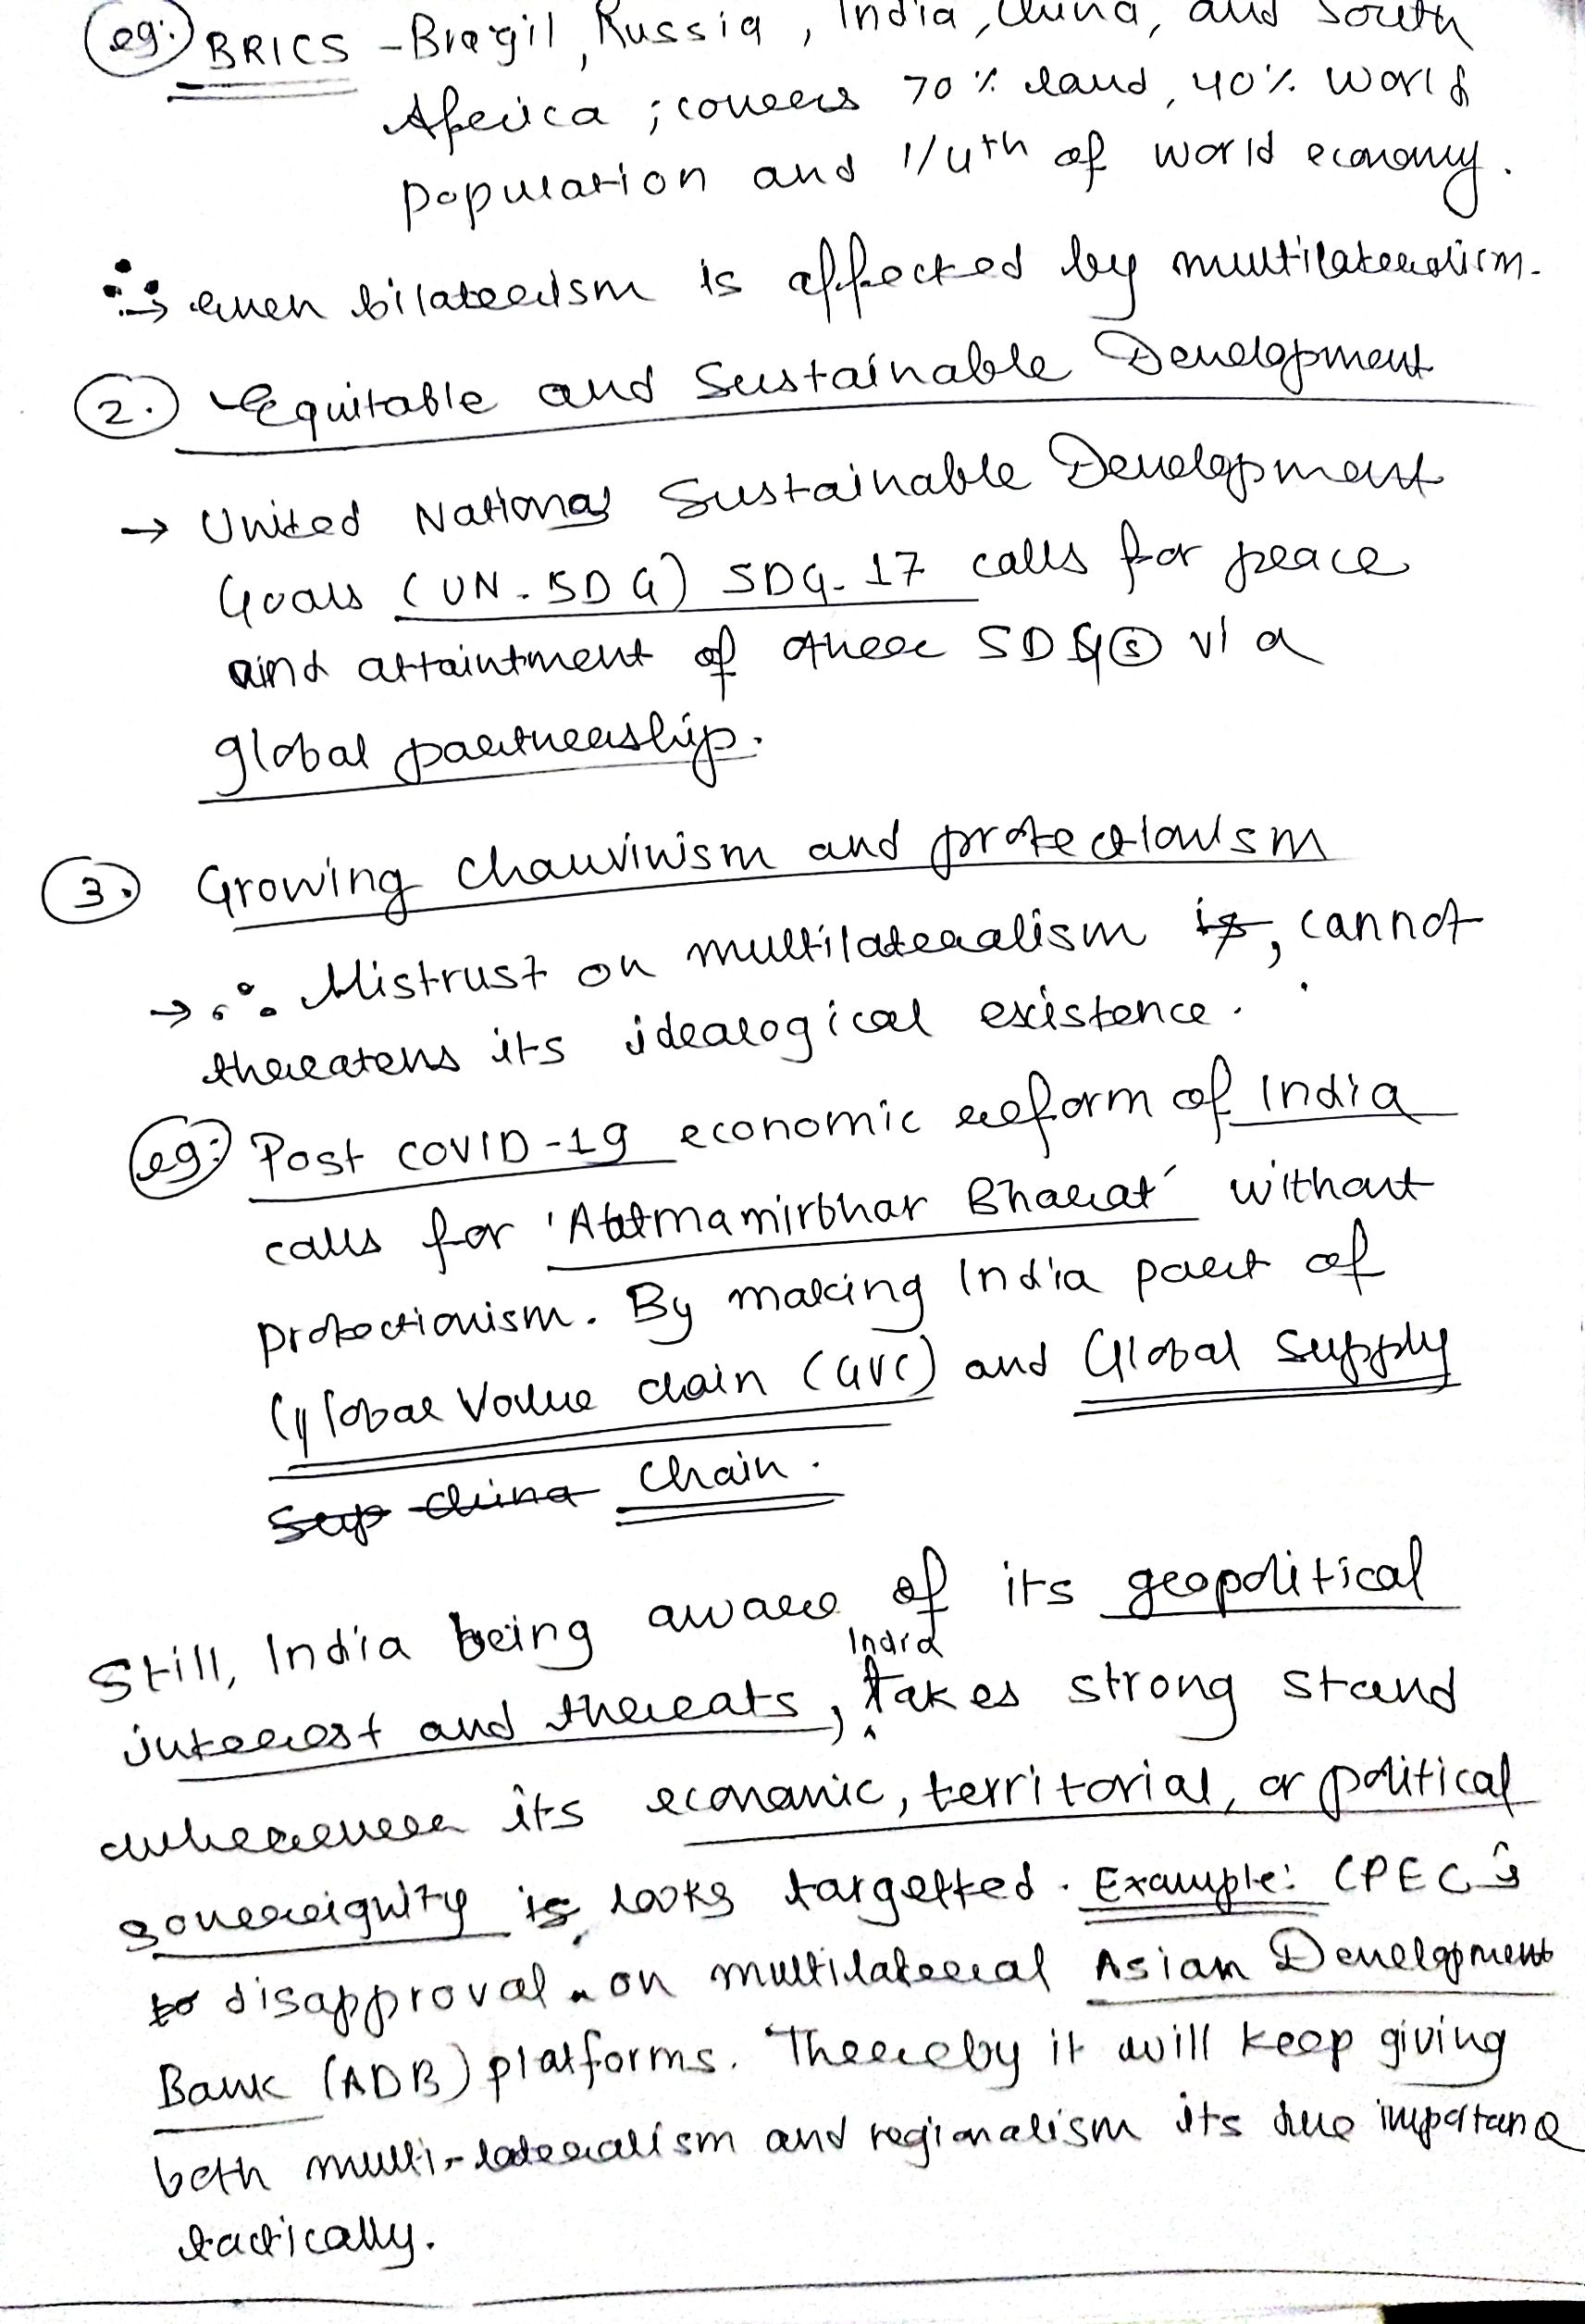 eg:) BRICS - Brazil, Russia, India, China, and South
Africa ; covers 70% land, 40% world
population and 1/4th of world economy.
∴→ even bilaterlism is affected by multilateralism.
2. Equitable and Sustainable Development
→ United Nations Sustainable Development
Goals (UN-SDG) SDG-17 calls for peace
and attaintment of other SDG(s) via
global partnership.
3. Growing chauvinism and protectionism
→ ∴ Mistrust on multilateralism is, cannot
threatens its idealogical existence.
eg:) Post COVID-19 economic reform of India
calls for 'Aatmamirbhar Bharat' without
protectionism. By making India part of
Global Value chain (GVC) and Global Supply
Sup China Chain.
Still, India being aware of its geopolitical
India
interest and threats, takes strong stand
whereever its economic, territorial, or political
sovereignity is looks targetted. Example: CPEC's
to disapproval on multilateral Asian Development
Bank (ADB) platforms. Thereby it will keep giving
both multi-lateralism and regionalism its due importance
tactically.